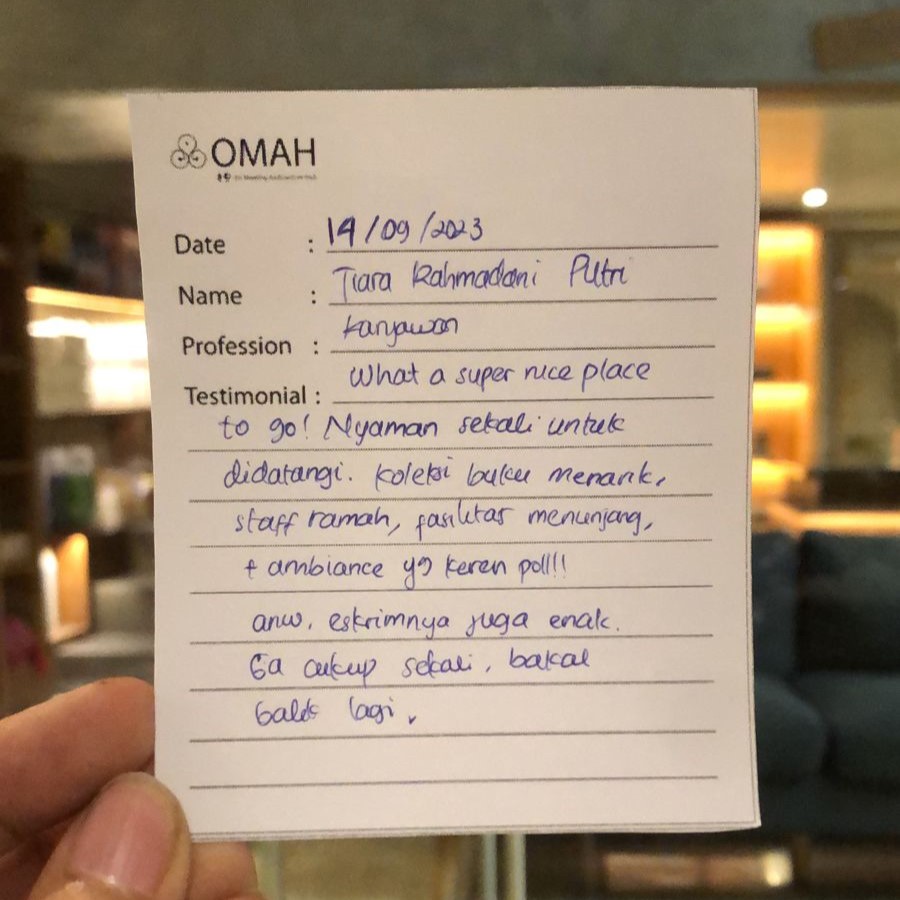 OMAH
Date : 19/09/2023
Name : Tiara Rahmadani Putri
Profession : karyawan
Testimonial : What a super nice place
to go! Nyaman sekali untuk
didatangi. Koleksi buku menarik,
staff ramah, fasilitas menunjang,
+ ambiance yg keren poll!!
anw, eskrimnya juga enak.
Ga cukup sekali, bakal
balik lagi,